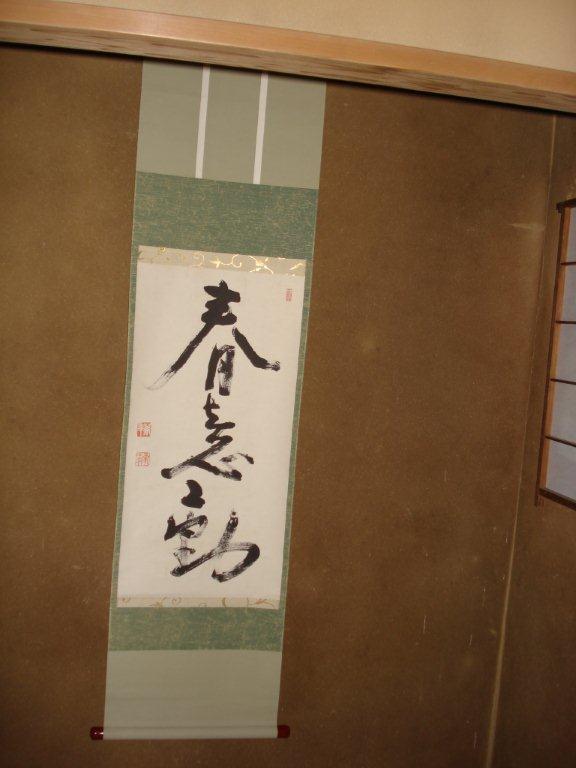 春意動